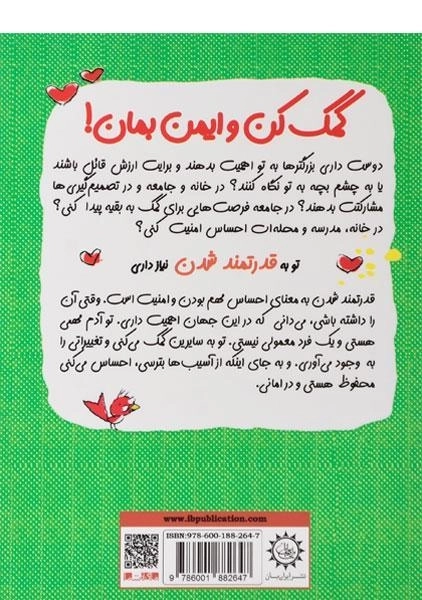 کمک کن و ایمن بمان!
دوست داری بزرگترها به تو اهمیت بدهند و برایت ارزش قائل باشند
یا به چشم بچه به تو نگاه کنند؟ در خانه و جامعه و در تصمیم‌گیری‌ها
مشارکتت بدهند؟ در جامعه فرصت‌هایی برای کمک به بقیه پیدا کنی؟
در خانه، مدرسه و محله‌ات احساس امنیت کنی؟
تو به قدرتمند شدن نیاز داری
قدرتمند شدن به معنای احساس مهم بودن و امنیت است. وقتی آن
را داشته باشی، می‌دانی که در این جهان اهمیت داری. تو آدم مهمی
هستی و یک فرد معمولی نیستی. تو به سایرین کمک می‌کنی و تغییراتی را
به وجود می‌آوری. و به جای اینکه از آسیب‌ها بترسی، احساس می‌کنی
محفوظ هستی و در امانی.
www.ibpublication.com
ISBN: 978-600-188-264-7
9 786001 882647
نشر ایران‌بان